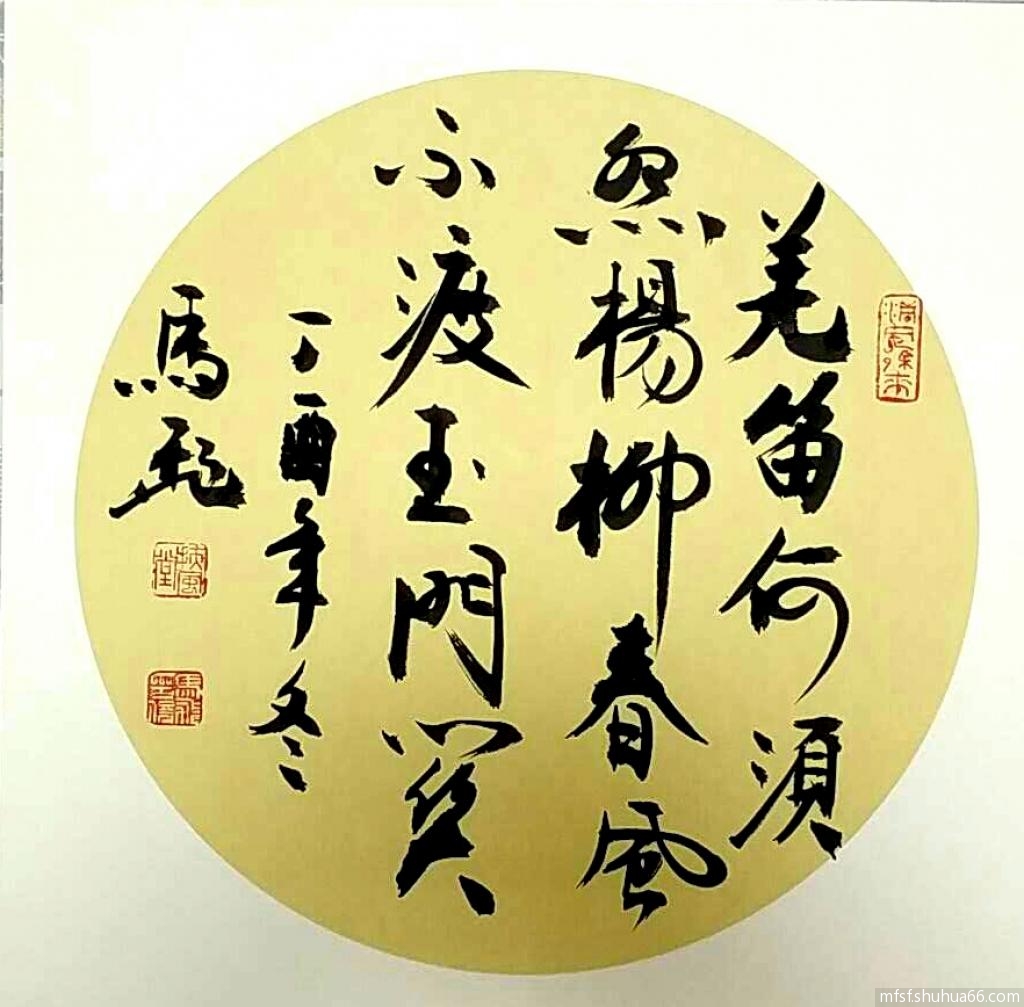 羌笛何須
怨楊柳春風
不渡玉門關
丁酉年冬
馬
扶風堂
mfsf.shuhua66.com